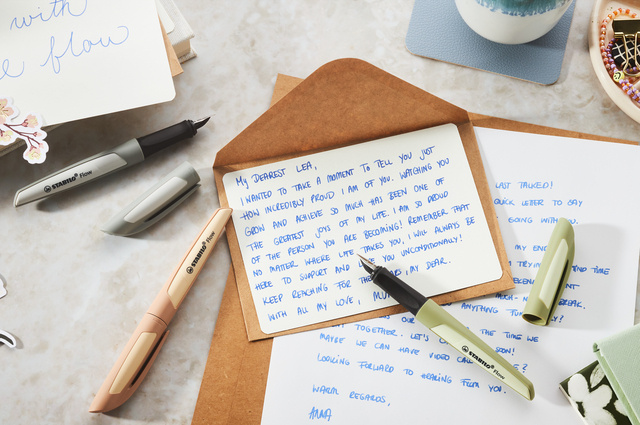 with
flow
STABILO flow
STABILO flow
STABILO flow
MY DEAREST LEA,
I WANTED TO TAKE A MOMENT TO TELL YOU JUST
HOW INCREDIBLY PROUD I AM OF YOU. WATCHING YOU
GROW AND ACHIEVE SO MUCH HAS BEEN ONE OF
THE GREATEST JOYS OF MY LIFE. I AM SO PROUD
OF THE PERSON YOU ARE BECOMING! REMEMBER THAT
NO MATTER WHERE LIFE TAKES YOU, I WILL ALWAYS BE
HERE TO SUPPORT AND YOU UNCONDITIONALLY!
KEEP REACHING FOR MY DEAR.
WITH ALL MY LOVE,
LAST TALKED!
QUICK LETTER TO SAY
GOING WITH YOU.
MY
TIME
BREAK.
ANYTHING
TOGETHER. LET'S THE TIME WE
MAYBE WE CAN HAVE VIDEO CALL
LOOKING FORWARD TO HEARING FROM YOU.
WARM REGARDS,
ANNA
STABILO flow